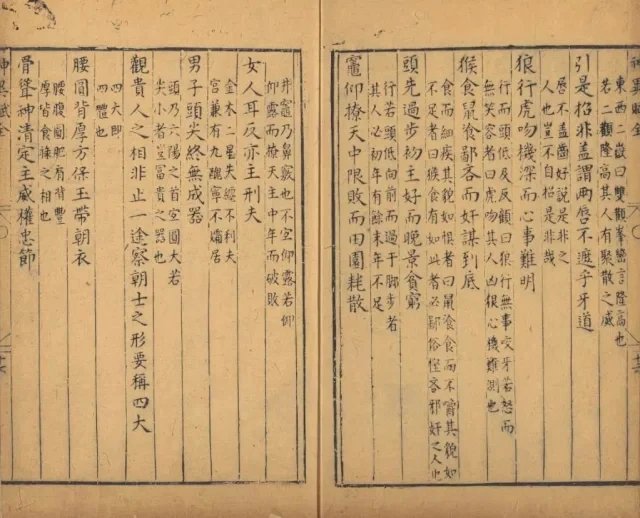 神異賦全
東西二嶽曰雙觀峯巒言隆高也
若二觀隆高其人有聚散之威
引是招非蓋謂兩唇不遮乎牙道
唇不蓋齒好說是非之
人也豈不自招是非哉
狼行虎吻機深而心事難明
行而頭低及反顧曰狼行無事咬牙若怒而
無笑容者曰虎吻其人凶狠心機難測也
猴食鼠飡鄙吝而奸謀到底
食而細疾其貌如惧者曰鼠飡食而不嚼其貌如
不足者曰猴食有如此者必鄙俗慳吝邪奸之人也
頭先過步初主好而晚景貧窮
行若頭低向前而過于脚步者
其人必初年有餘末年不足
竈仰撩天中限敗而田園耗散
井竈乃鼻竅也不宜仰露若仰
仰露而撩天主中年而破敗
女人耳反亦主刑夫
金木二星夫緾不利夫
宮兼有九醜寧不孀居
男子頭尖終無成器
頭乃六陽之首宜圓大若
尖小者豈富貴之器也
觀貴人之相非止一途察朝士之形要稱四大
四大即
四體也
腰圓背厚方保玉帶朝衣
腰腹圓肥有背豐
厚皆食祿之相也
骨聳神清定主威權忠節
神異賦全